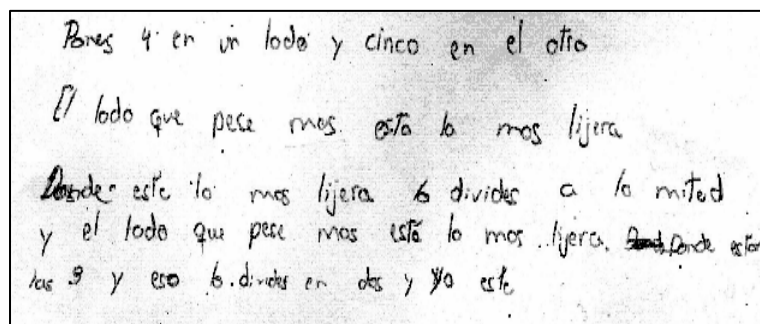 Pones 4 en un lado y cinco en el otro
El lado que pese mas esta la mas lijera
Donde este la mas lijera lo divides a la mitad
y el lado que pese mas está la mas lijera. Donde estan
las 9 y eso lo divides en dos y ya este